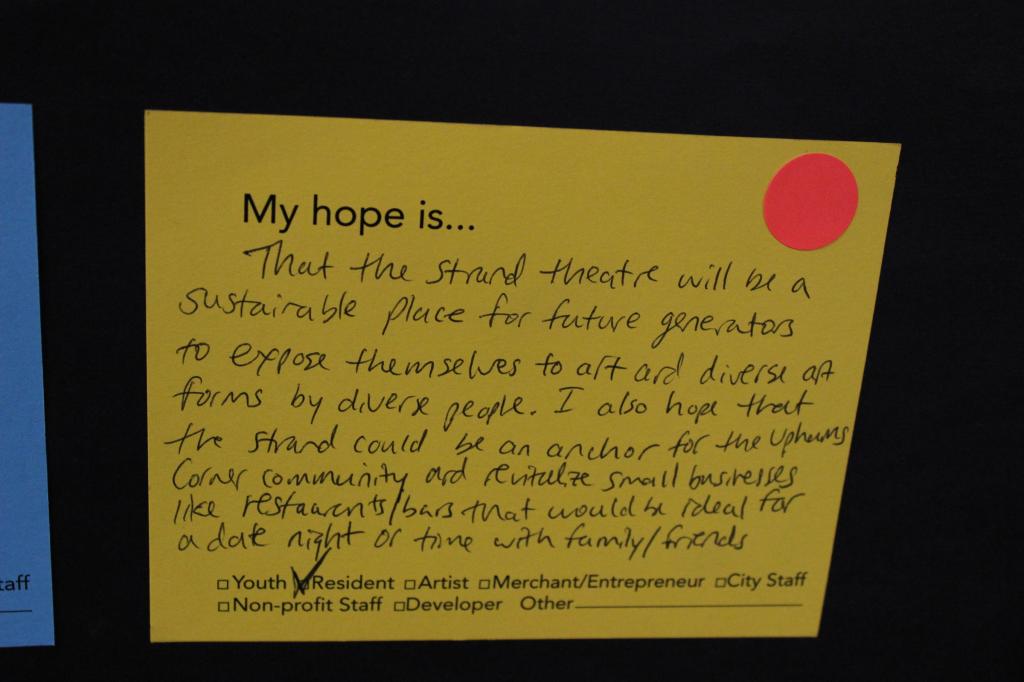 My hope is...
That the strand theatre will be a
sustainable place for future generators
to expose themselves to art and diverse art
forms by diverse people. I also hope that
the strand could be an anchor for the Uphams
Corner community and revitalize small businesses
like restaurants/bars that would be ideal for
a date night or time with family/friends
☐ Youth ☑ Resident ☐ Artist ☐ Merchant/Entrepreneur ☐ City Staff
☐ Non-profit Staff ☐ Developer Other
taff